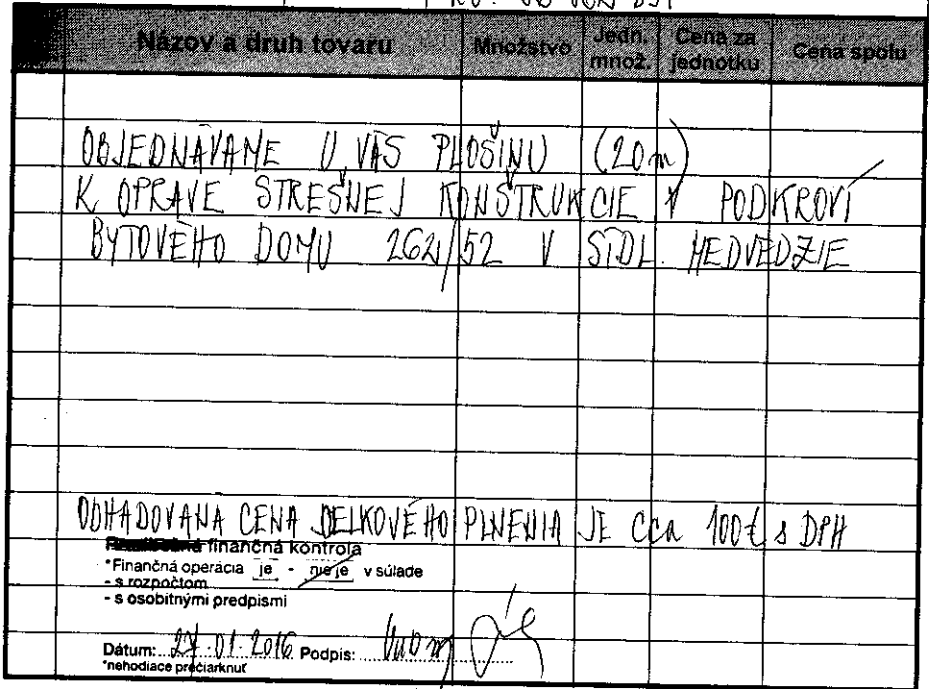 Názov a druh tovaru Množstvo Jedn. množ. Cena za jednotku Cena spolu
OBJEDNÁVAME U VÁS PLOŠINU (20m)
K OPRAVE STREŠNEJ KONŠTRUKCIE V PODKROVÍ
BYTOVÉHO DOMU 262/52 V SÍDL. MEDVEDZIE
ODHADOVANA CENA CELKOVÉHO PLNENIA JE cca 100€ s DPH
finančná kontrola
*Finančná operácia je - nie je v súlade
- s rozpočtom
- s osobitnými predpismi
Dátum: 27.01.2016 Podpis:
*nehodiace prečiarknuť